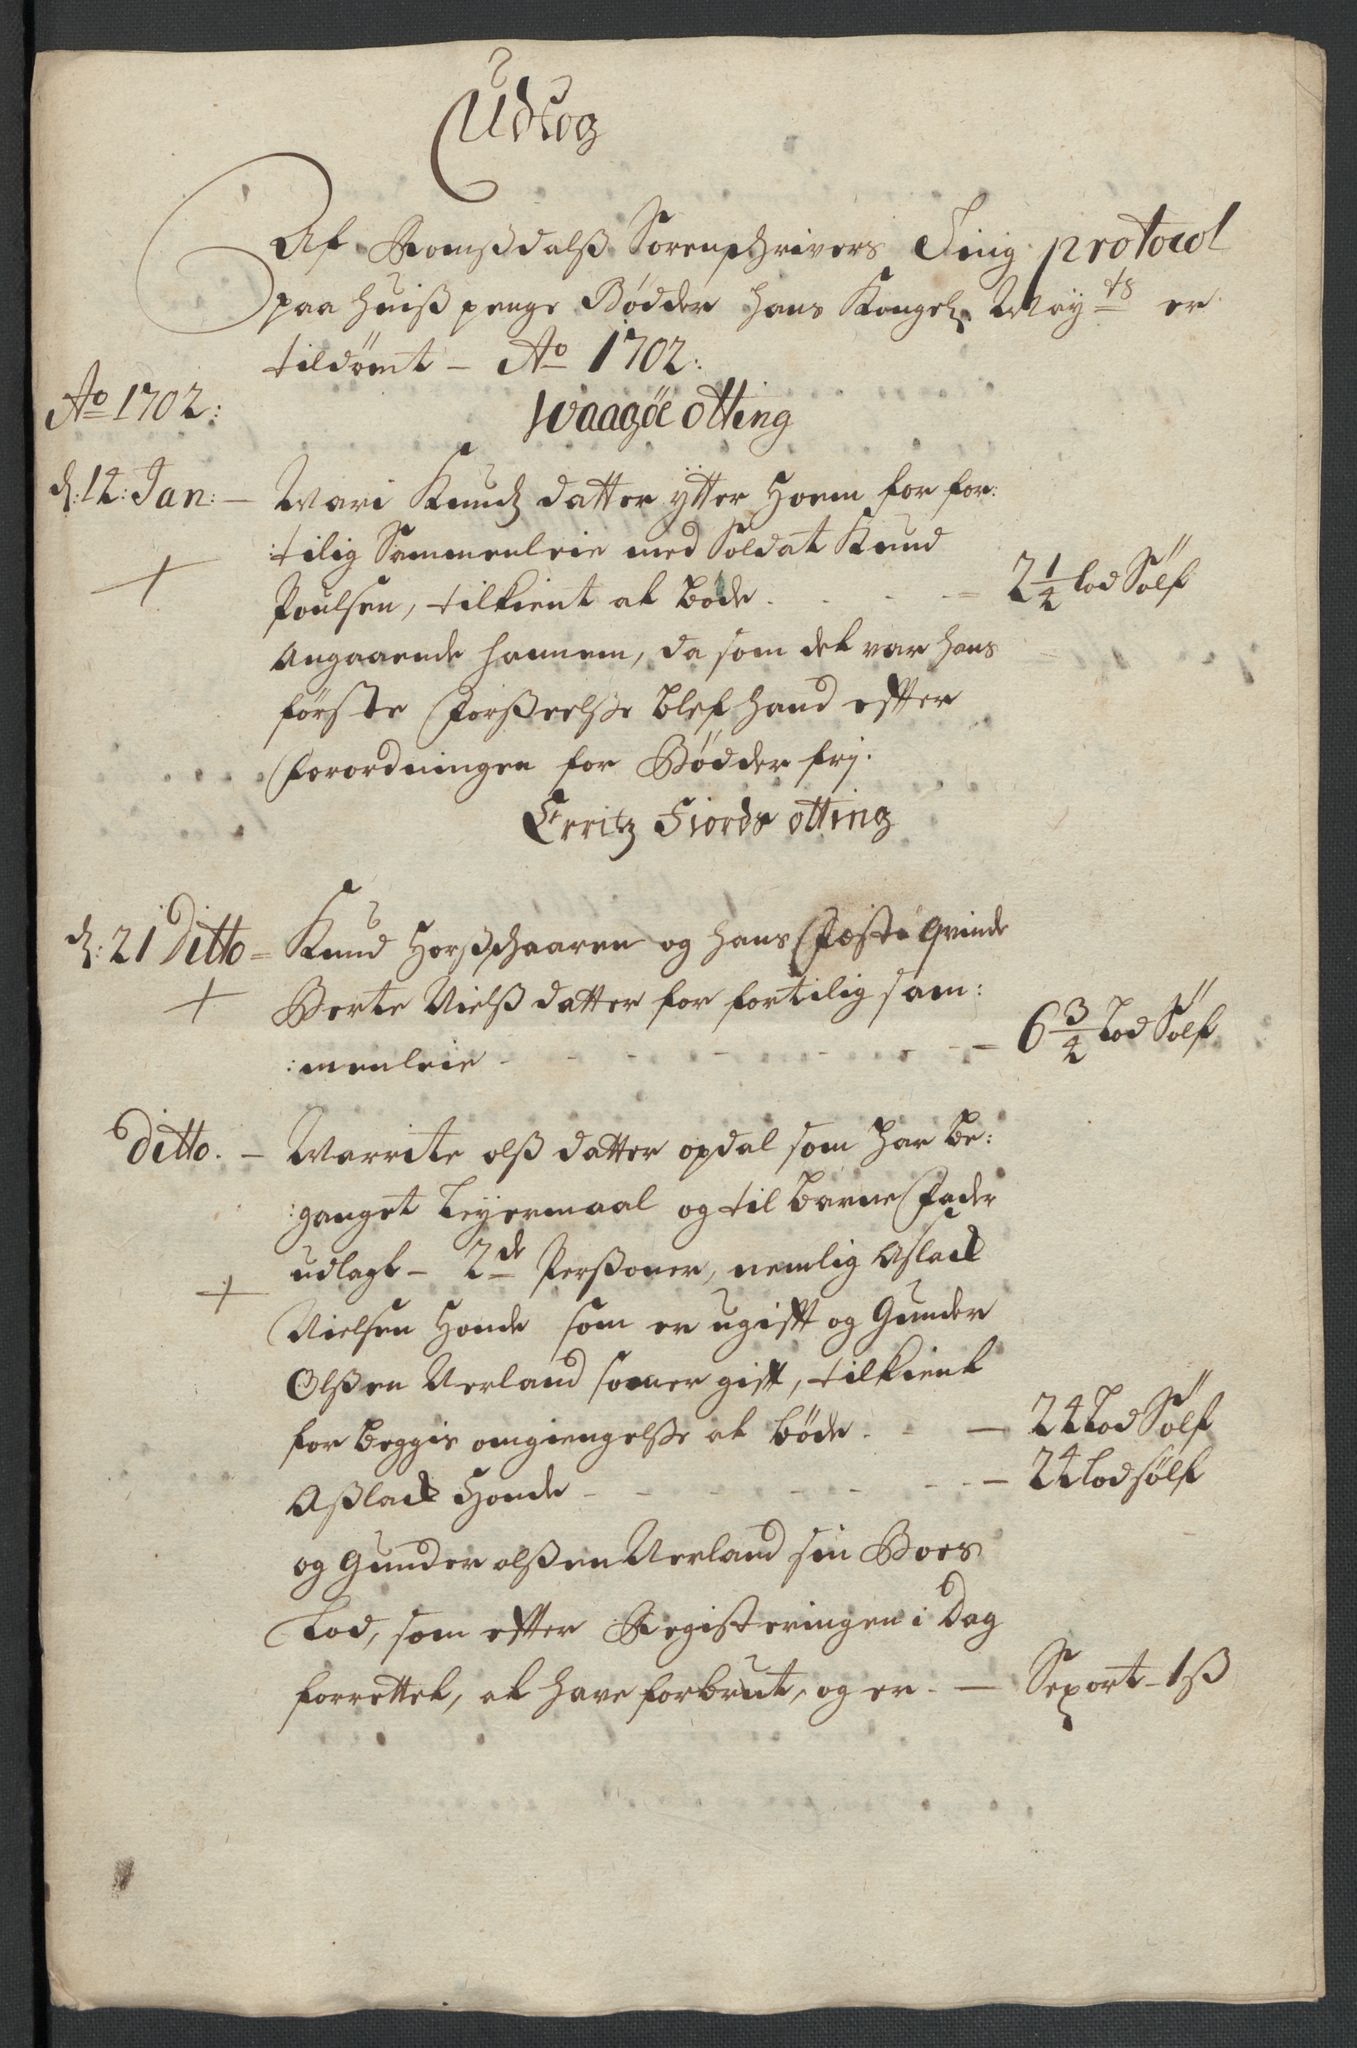 Udtog
Af Romßdalß Sorenschrivers Ting protocol
paa huiß penge Bødder hans Kongel. May.ts er
tildømt – Ao 1702:
Ao 1702:
Waagöe otting
d: 12: Jan: – Mari Knudz datter ytter Hoem for for:
:tilig Sammenleie med Soldat Knud
Poulsen, tilkient at bøde – 2 1/2 lod Sølf
Angaaende hannem, da som det var hans
første Forßeelße blef hand efter
forordningen for Bødder frj.
Erritz Fiords otting
d: 21 Ditto – Knud Horßschaaren og hans Fæste qvinde
Berte Nielß datter for fortilig sam:
:menleie – 6 3/4 Lod Sølf
Ditto. – Marrite olß datter opdal som har be:
:ganget Leyermaal og til barne Fader
udlagt – 2de Perßoner, nemlig Aslack
Nielsen Honde som er ugifft og Gunder
Olßen Nerland som er gifft, tilkient
for beggis omgiengelße at bøde – 24 Lod Sølf
Aßlack Honde – 24 Lod sølf
og Gunder olßen Nerland sin Boes
Lod, som efter Registeringen i Dag
forrettet, at have forbrut, og er – Seport – 1ß